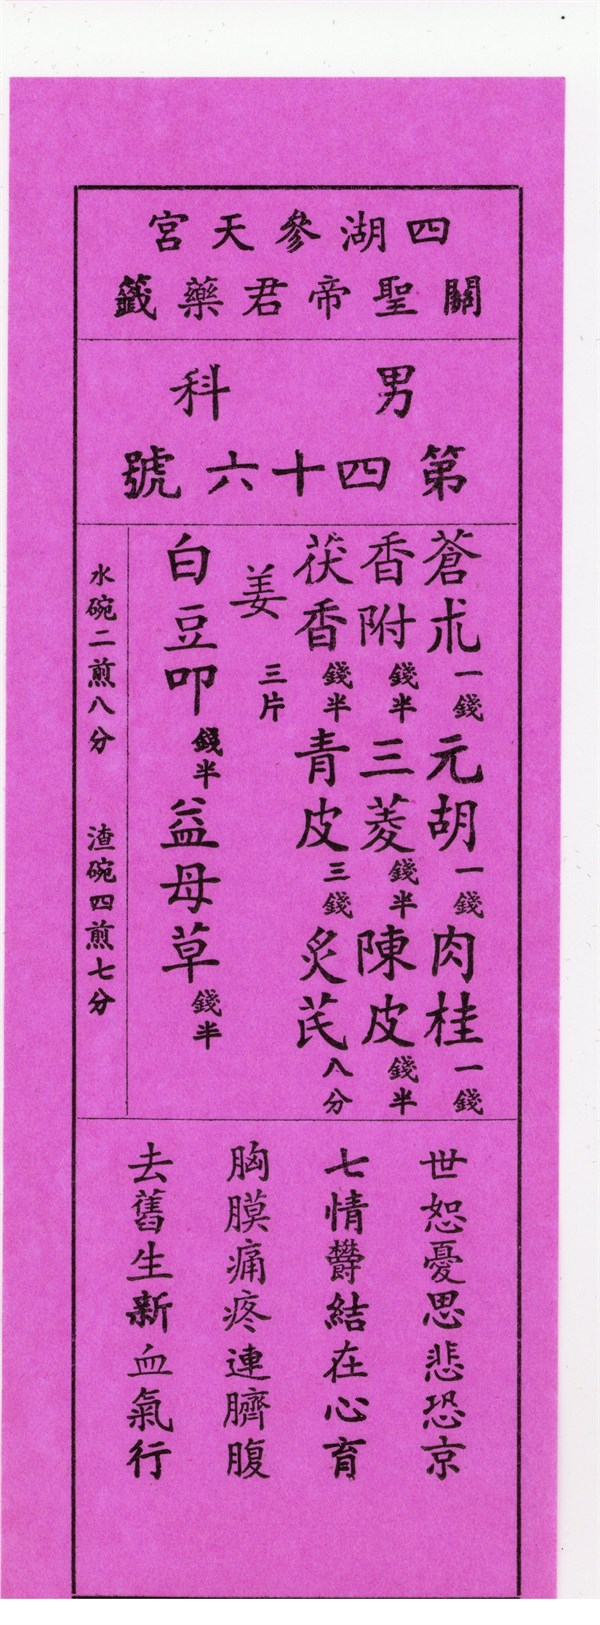 四湖參天宮
關聖帝君藥籤
男科
第四十六號
蒼朮一錢元胡一錢肉桂一錢
香附錢半三菱錢半陳皮錢半
茯香錢半青皮三錢炙芪八分
姜三片
白豆叩錢半益母草錢半
水碗二煎八分 渣碗四煎七分
世恕憂思悲恐京
七情欝結在心育
胸膜痛疼連臍腹
去舊生新血氣行